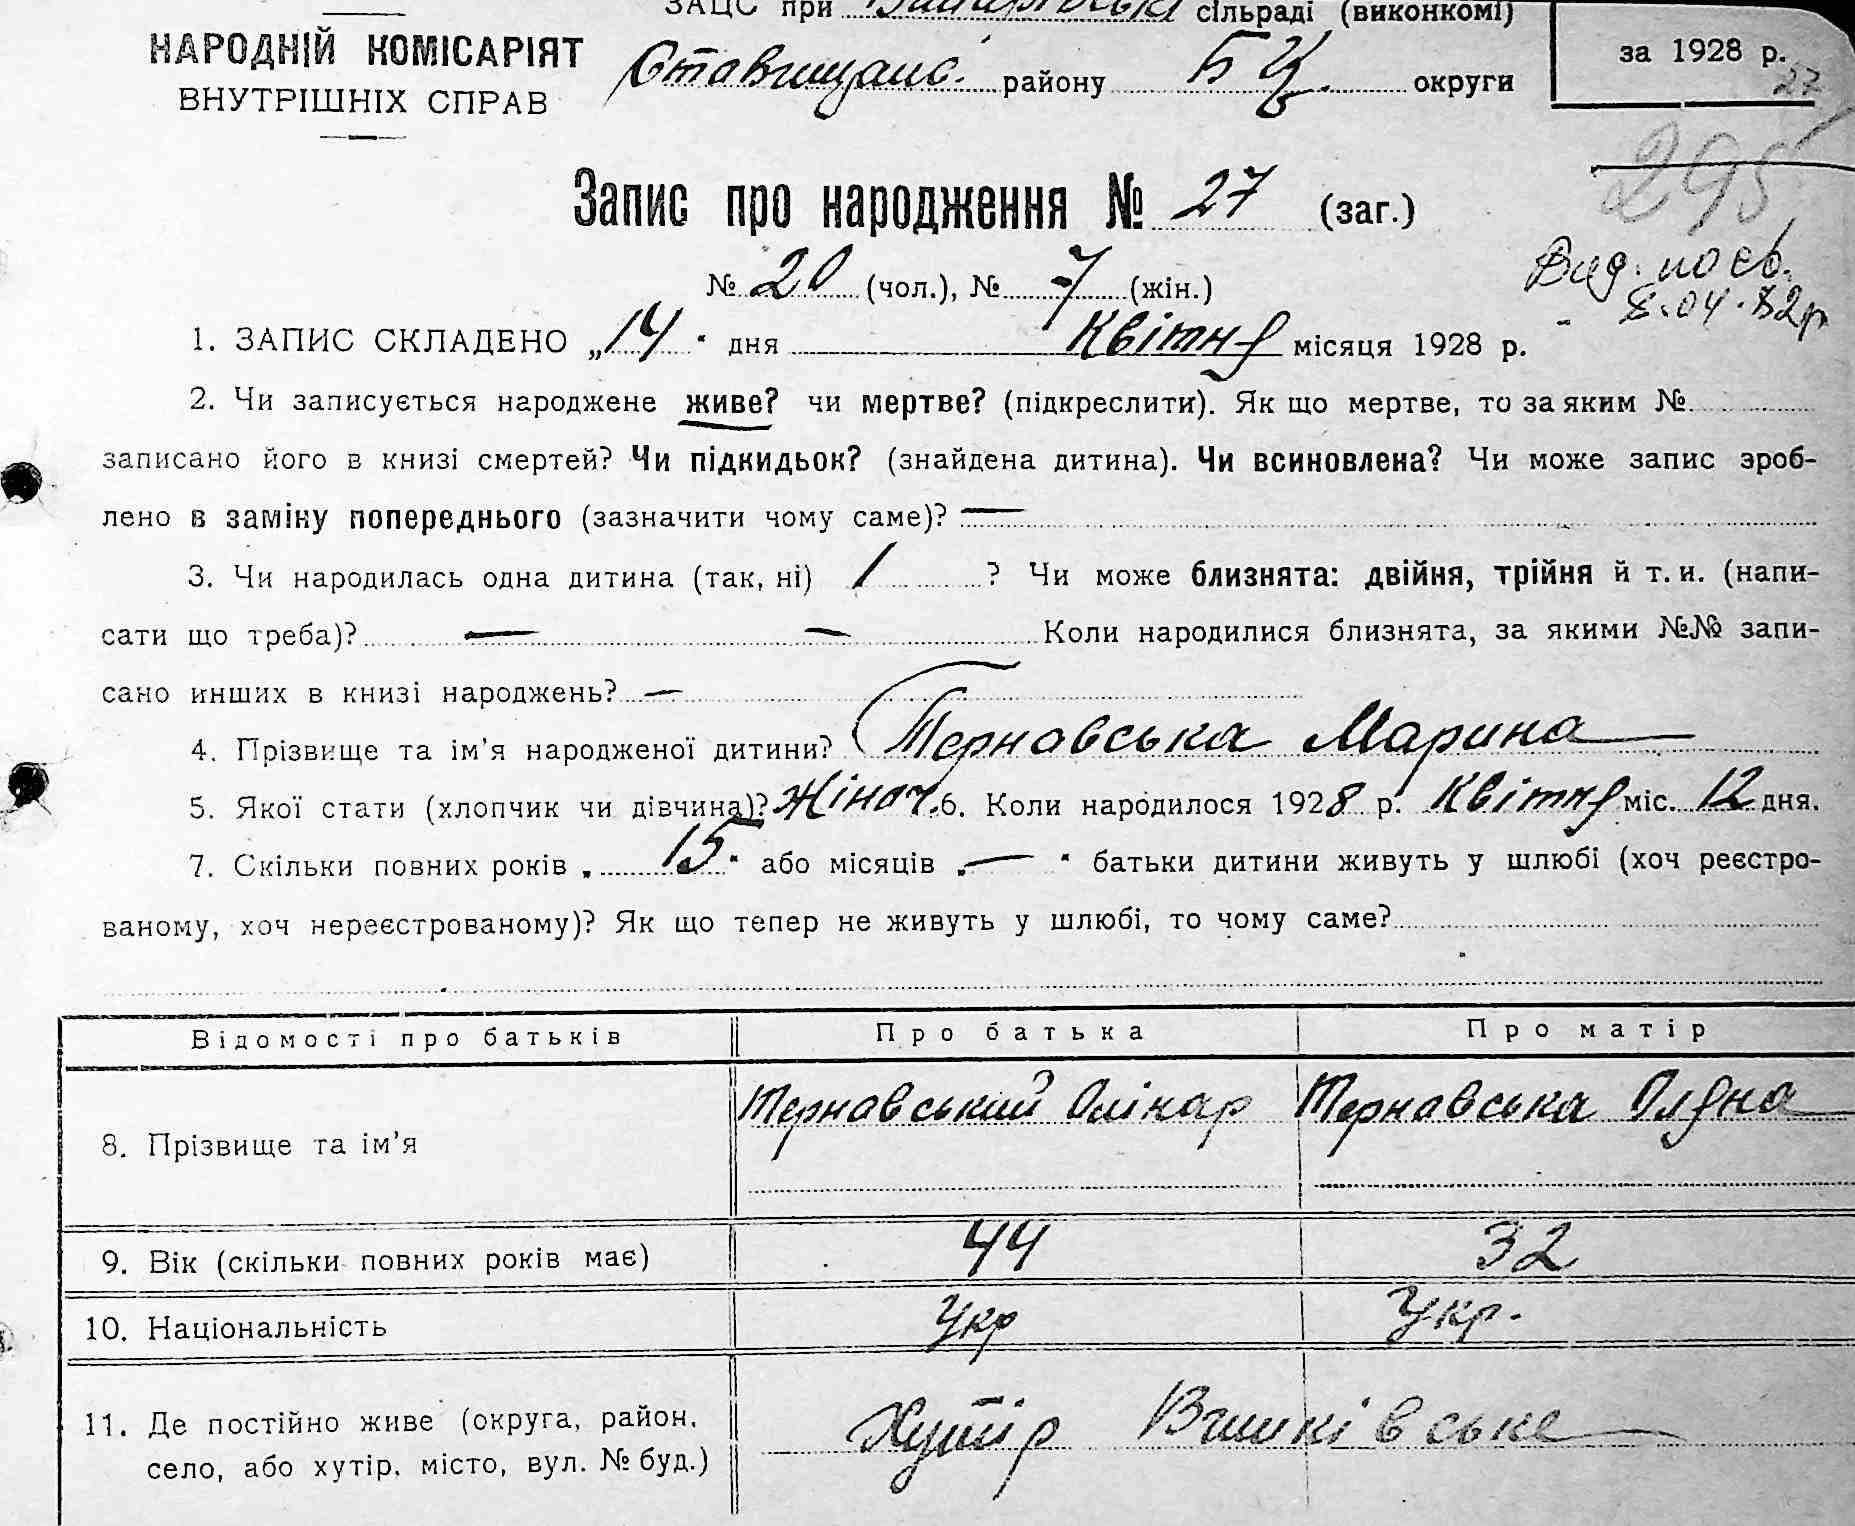 ЗАЦС при сільраді (виконкомі)
НАРОДНІЙ КОМІСАРІЯТ
ВНУТРІШНІХ СПРАВ
Ставищанс. району БЦ. округи
за 1928 р.
27
295
Запис про народження № 27 (заг.)
№ 20 (чол.), № 7 (жін.)
Вид. посв.
8.04.82р
1. ЗАПИС СКЛАДЕНО „14" дня Квітня місяця 1928 р.
2. Чи записується народжене живе? чи мертве? (підкреслити). Як що мертве, то за яким №
записано його в книзі смертей? Чи підкидьок? (знайдена дитина). Чи всиновлена? Чи може запис зроб-
лено в заміну попереднього (зазначити чому саме)? —
3. Чи народилась одна дитина (так, ні) 1 ? Чи може близнята: двійня, трійня й т. и. (напи-
сати що треба)? — — Коли народилися близнята, за якими №№ запи-
сано инших в книзі народжень? —
4. Прізвище та ім'я народженої дитини? Тернавська Марина
5. Якої стати (хлопчик чи дівчина)? Жіноч. 6. Коли народилося 1928 р. Квітня міс. 12 дня.
7. Скільки повних років „15" або місяців „—" батьки дитини живуть у шлюбі (хоч реєстро-
ваному, хоч нереєстрованому)? Як що тепер не живуть у шлюбі, то чому саме?
Відомості про батьків Про батька Про матір
8. Прізвище та ім'я Тернавський Олікар Тернавська Олена
9. Вік (скільки повних років має) 44 32
10. Національність Укр Укр.
11. Де постійно живе (округа, район,
село, або хутір, місто, вул. № буд.) Хутір